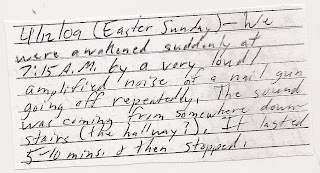 4/12/09 (Easter Sunday) - We
were awakened suddenly at
7:15 A.M. by a very loud/
amplified noise of a nail gun
going off repeatedly. The sound
was coming from somewhere down-
stairs (the hallway?). It lasted
5-10 mins. & then stopped.